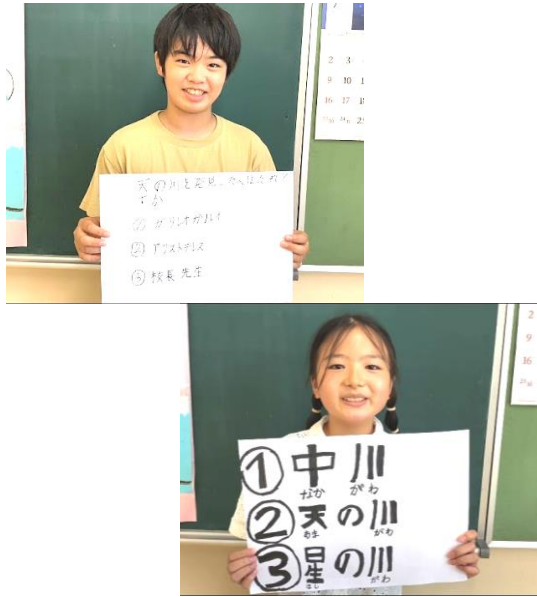 天の川を発見した人はだれで
すか
① ガリレオガリレイ
② アリストテレス
③ 校長先生
2 3
9 10
16 17
①中川
なか がわ
②天の川
あま がわ
③星の川
ほし がわ
2
9
16